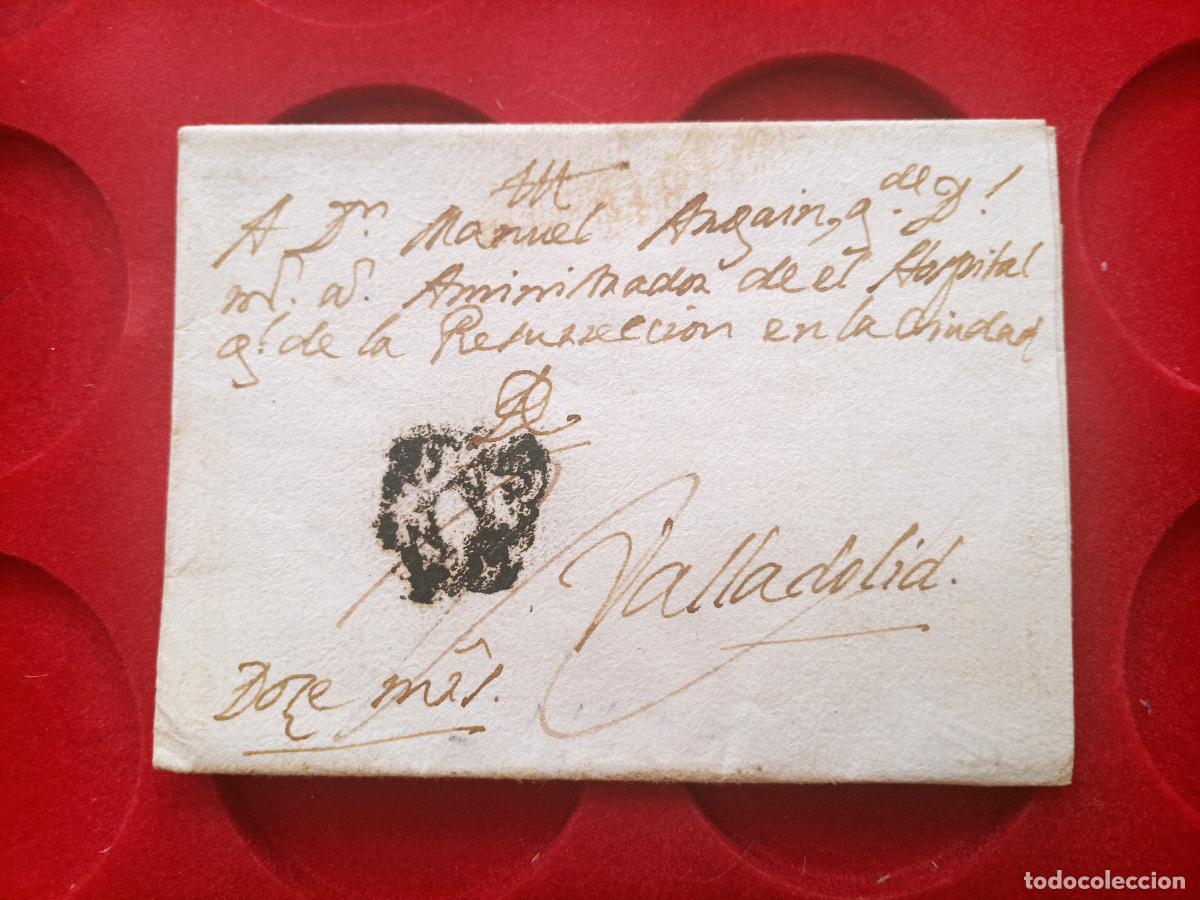 A Dn. Manuel Angain, q. de D.
ms. as. Aminirtrador de el Hospital
gl. de la Resurreccion en la Ciudad
De
Valladolid.
Doze mrs.
todocoleccion